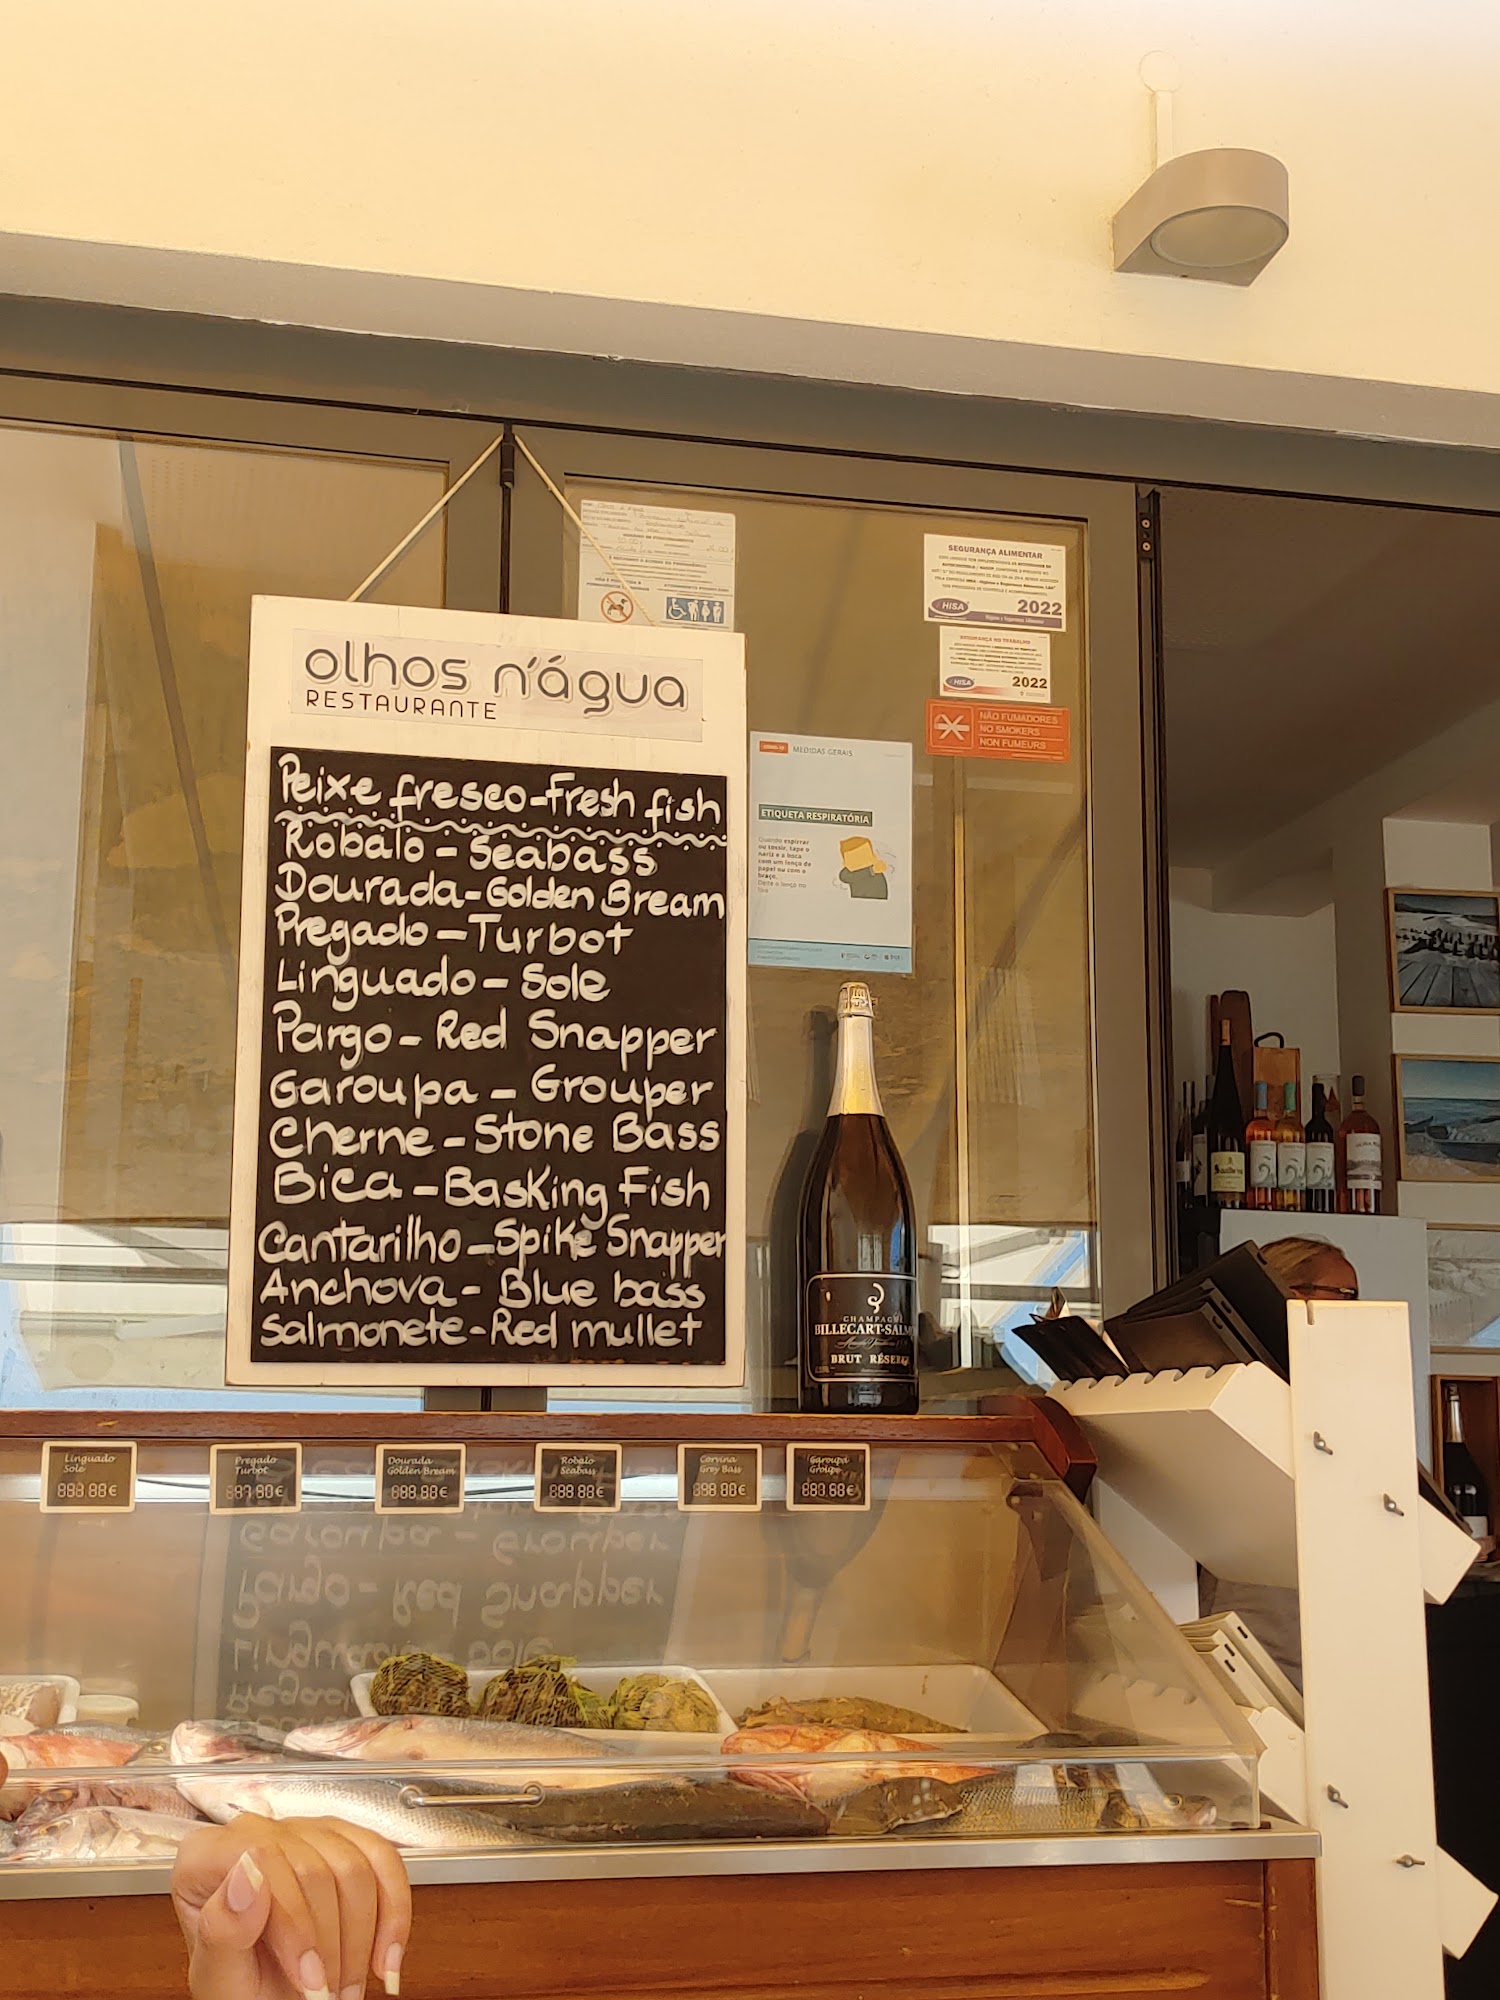 olhos n'água
RESTAURANTE
Peixe fresco - Fresh fish
Robalo - Seabass
Dourada - Golden Bream
Pregado - Turbot
Linguado - Sole
Pargo - Red Snapper
Garoupa - Grouper
Cherne - Stone Bass
Bica - Basking Fish
Cantarilho - Spike Snapper
Anchova - Blue bass
Salmonete - Red mullet
SEGURANÇA ALIMENTAR
HISA
2022
SEGURANÇA NO TRABALHO
HISA
2022
NÃO FUMADORES
NO SMOKERS
NON FUMEURS
MEDIDAS GERAIS
ETIQUETA RESPIRATÓRIA
Quando espirrar
ou tossir, tape o
nariz e a boca
com um lenço de
papel ou com o
braço.
Deite o lenço no
lixo
CHAMPAGNE
BILLECART-SALM
BRUT RÉSERV
Linguado
Sole
888.88€
Pregado
Turbot
Dourada
Golden Bream
888.88€
Robalo
Seabass
888.88€
Corvina
Grey Bass
888.88€
Garoupa
Groupe
888.88€